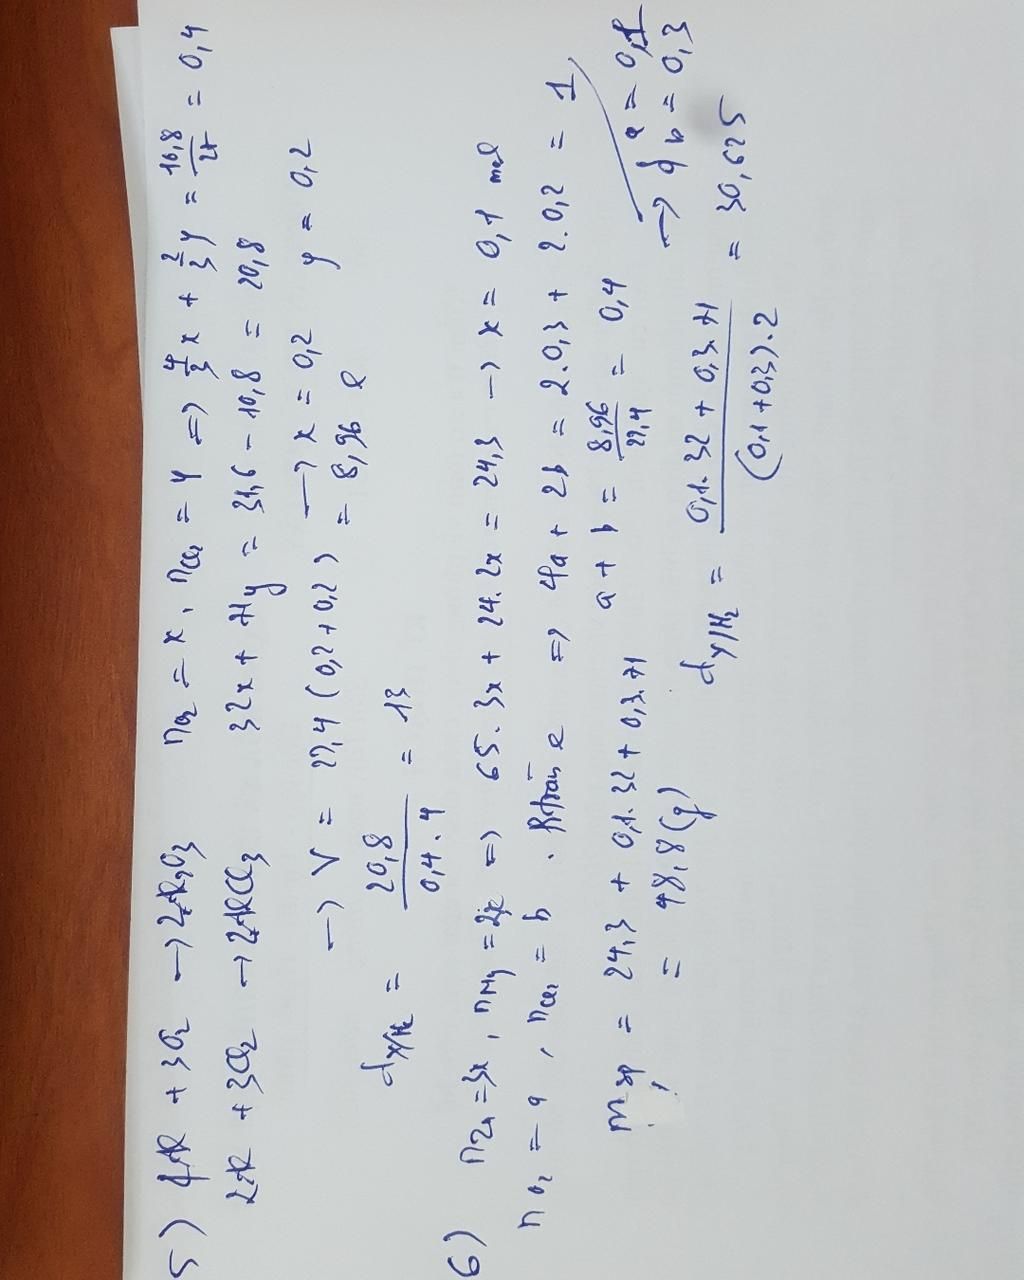 5) 4Al + 3O₂ → 2Al₂O₃ nO₂ = x, nCl₂ = y ⇒ 4/3x + 2/3y = 10,8/27 = 0,4
2Al + 3Cl₂ → 2AlCl₃ 32x + 71y = 31,6 - 10,8 = 20,8
→ V = 22,4 (0,2 + 0,2) → x = 0,2 y = 0,2
= 8,96 l
dX/H₂ = 20,8/0,4.4 = 13
6) nZn = 3x, nMg = 2x ⇒ 65.3x + 24.2x = 24,3 → x = 0,1 mol
nO₂ = a, nCl₂ = b. Btoàn e ⇒ 4a + 2b = 2.0,3 + 2.0,2 = 1
a + b = 8,96/22,4 = 0,4
→ { a = 0,1
b = 0,3
m sp = 24,3 + 0,1.32 + 0,3.71
= 48,8 (g)
dY/H₂ = 0,1.32 + 0,3.71/(0,1+0,3).2 = 30,625